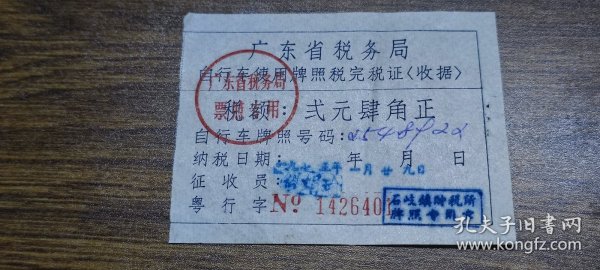 广东省税务局
自行车使用牌照税完税证〈收据〉
广东省税务局
票证专用
税额：弍元肆角正
自行车牌照号码：
纳税日期： 年 月 日
一九七 年 月廿九日
征收员：
粤行字 № 1426401
石岐鎮財稅所
牌照專用章
孔夫子旧书网
kongfz.com